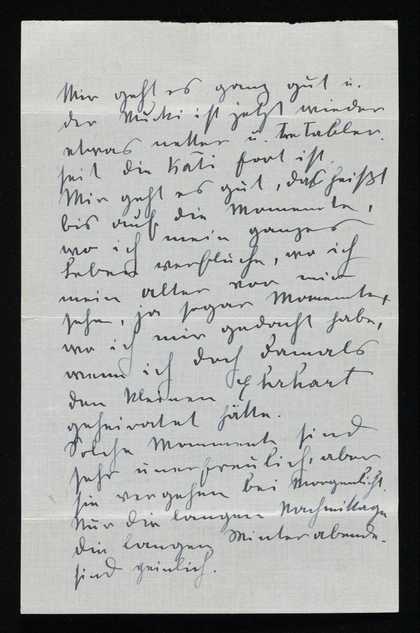 Mir geht es ganz gut u.
der Mucki ist jetzt wieder
etwas netter u.
seit die Kati fort ist.
Mir geht es gut, das heißt
bis auf die Momente,
wo ich mein ganzes
Leben verfluche, wo ich
mein alter vor mir
sehe, ja sogar Momente,
wo ich mir gedacht habe,
wenn ich doch damals
den kleinen Ehrhart
geheiratet hätte.
Solche Momente sind
sehr unerfreulich, aber
sie vergehen bei Morgenlicht.
Nur die langen Nachmittage
die langen Winterabende.
sind peinlich.